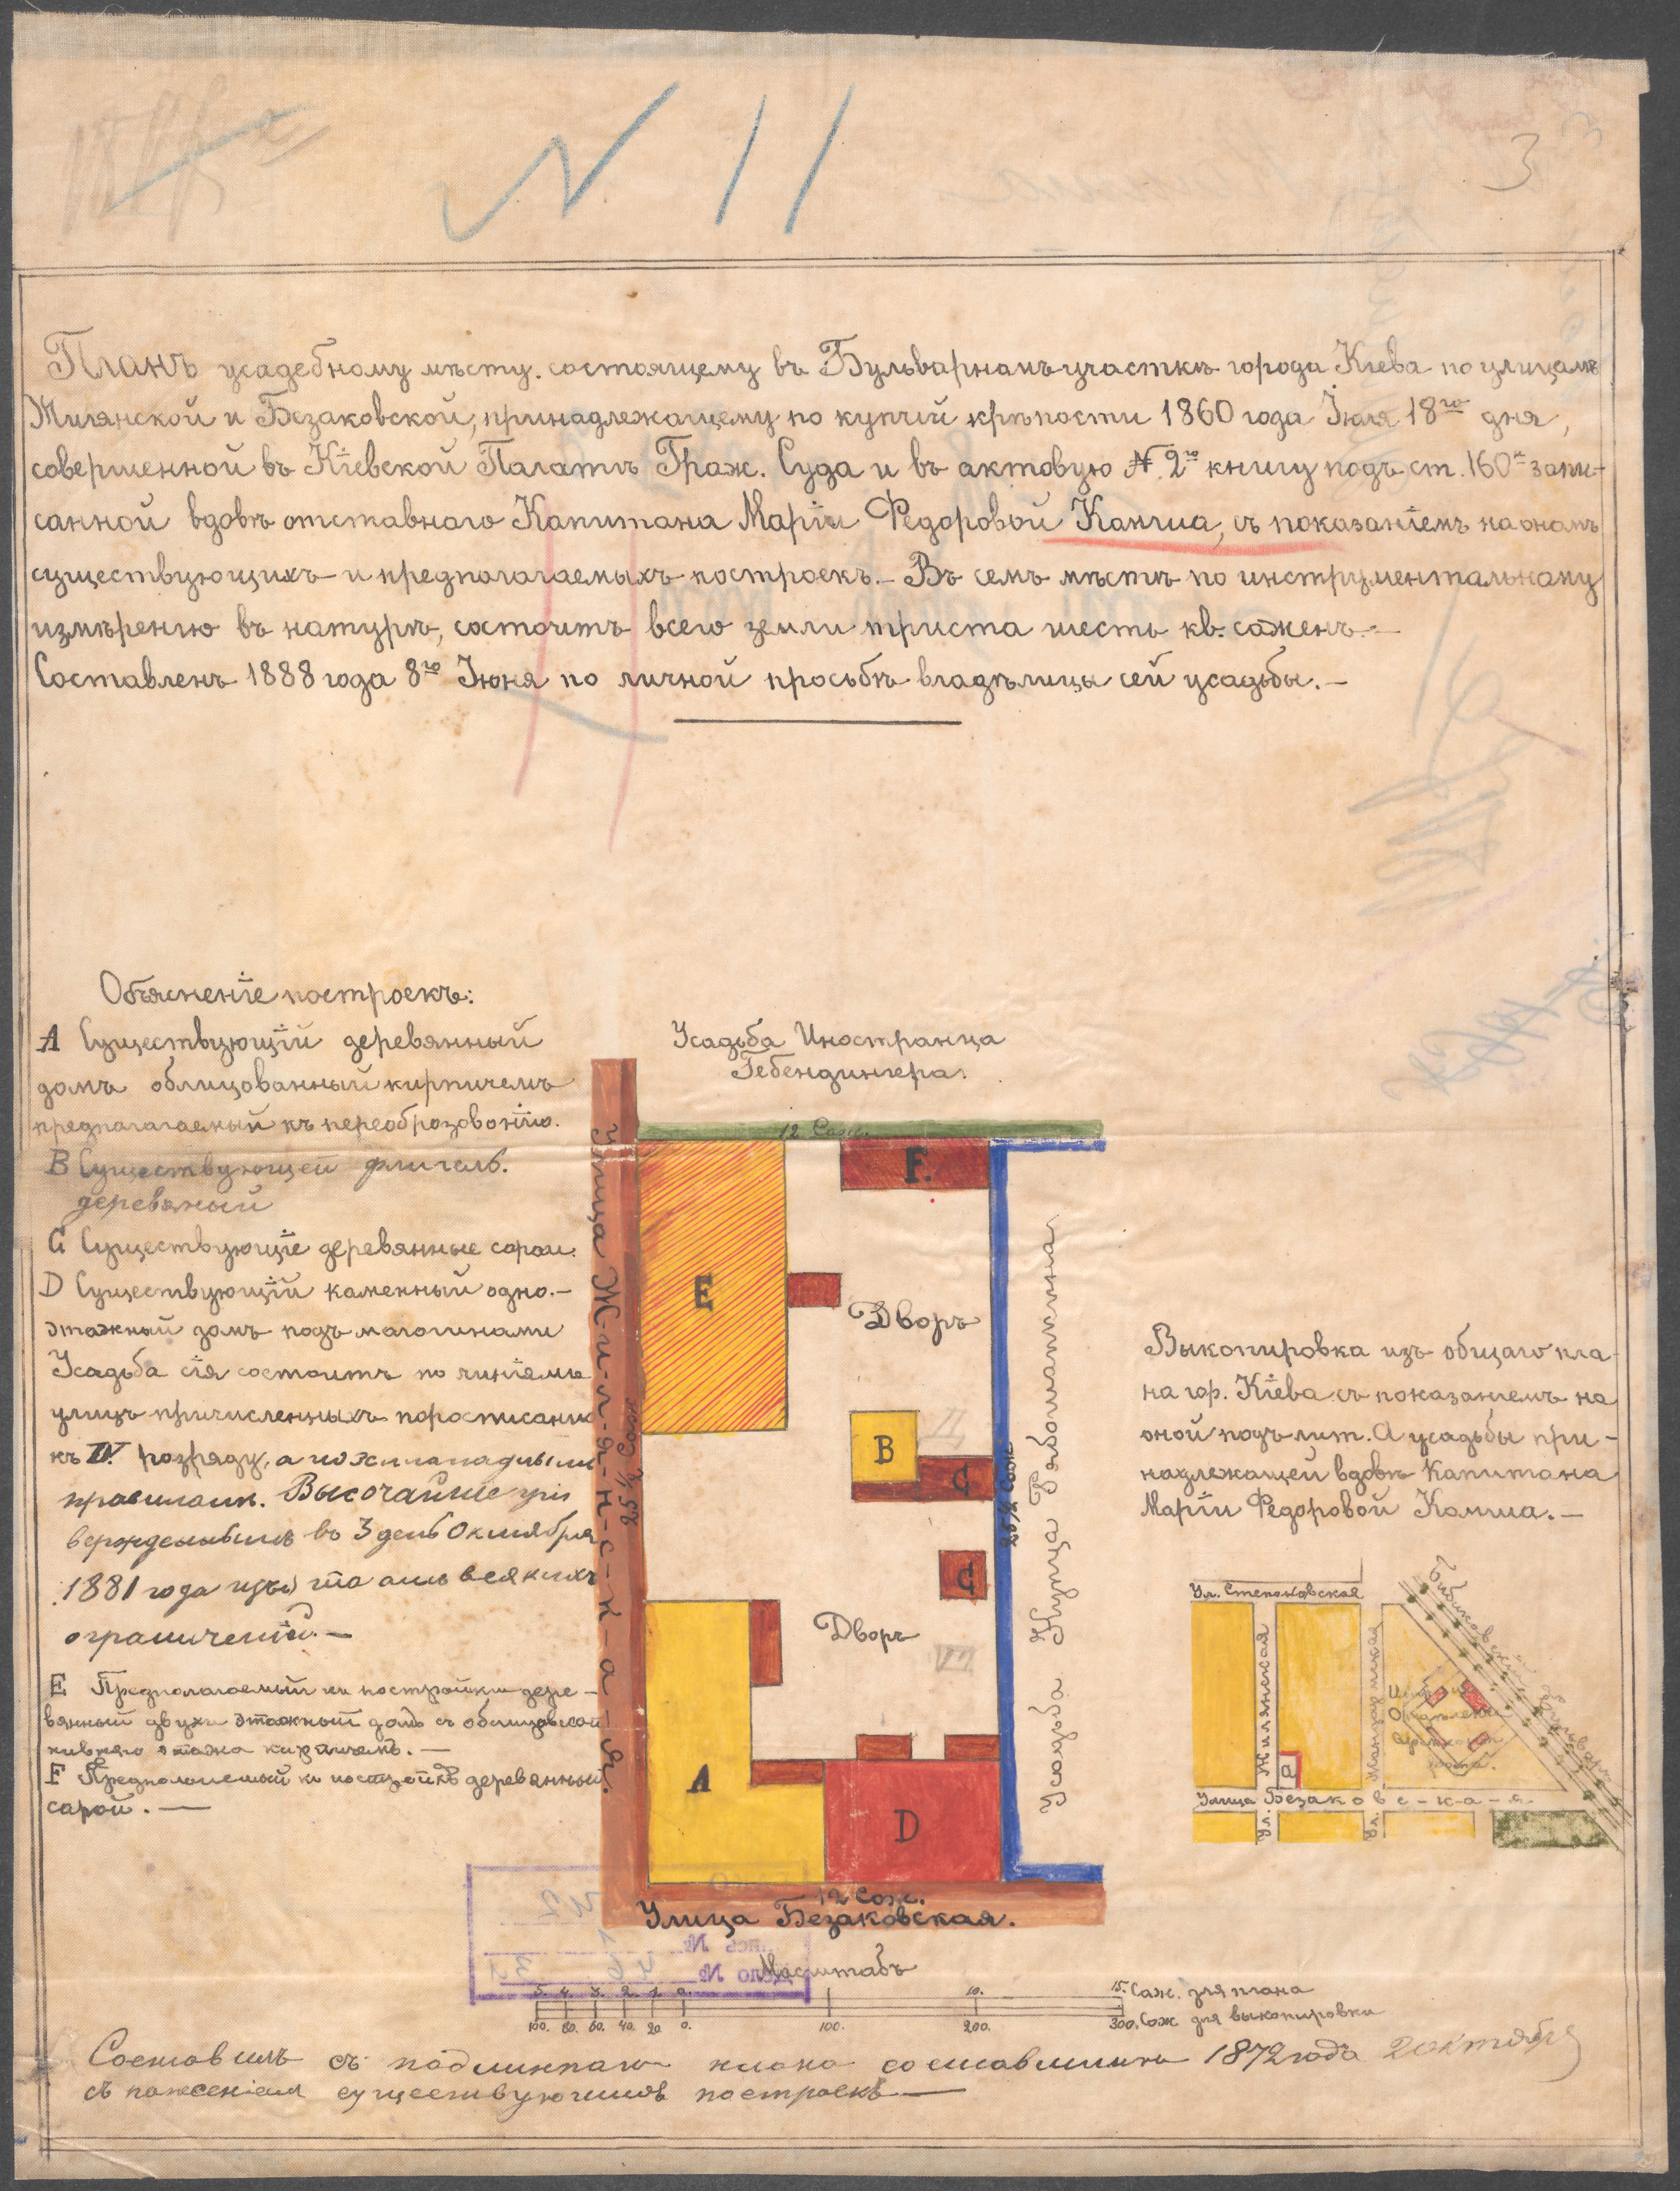 N 11
3
Планъ усадебному мѣсту, состоящему въ Бульварномъ участкѣ города Кіева по улицамъ
Жилянской и Безаковской, принадлежащему по купчій крѣпости 1860 года Іюля 18го дня,
совершенной въ Кіевской Палатѣ Граж. Суда и въ актовую № 2ю книгу подъ ст. 160й запи-
санной вдовѣ отставнаго Капитана Маріи Федоровой Камша, съ показаніемъ на ономъ
существующихъ и предполагаемыхъ построекъ.– Въ семъ мѣстѣ по инструментальному
измѣренію въ натурѣ, состоитъ всего земли триста шесть кв. саженъ.–
Составленъ 1888 года 8го Іюня по личной просьбѣ владѣлицы сей усадьбы.–
Объясненіе построекъ:
А Существующій деревянный
домъ облицованный кирпичемъ
предполагаемый къ переобразованію.
В Существующей флигель.
деревяный
С Существующіе деревянные сараи.
D Существующій каменный одно.–
этажный домъ подъ магазинами
Усадьба сія состоитъ по линіямъ
улицъ причисленныхъ по росписанію
къ IV. розряду, а
правилами. Высочайше
въ 3 день Октября
1881 года всякихъ
ограниченій.–
Е Предполагаемый къ постройки дере–
вянный двухъ этажный домъ съ облицовкой
нижняго этажа кирпичемъ.–
F Предполагаемый къ постройкѣ деревянный
сарай.–
Усадьба Иностранца
Гебендингера.
12 Саж.
F.
Е
Дворъ
В
С
С
Дворъ
А
D
Улица Ж-и-л-я-н-с-к-а-я.
25½ Саж.
25½ Саж.
Усадьба Купца Рябошапкина
12 Саж.
Улица Безаковская.
Выкопировка изъ общаго пла-
на гор. Кіева съ показаніемъ на
оной подъ лит. А усадьбы при-
надлежащей вдовѣ Капитана
Маріи Федоровой Камша.–
Ул. Степановская
Бибиковскій бульваръ
Ул. Жилянская
Ул. Жандармская
а
Улица Безаковс-к-а-я
Масштабъ
5. 4. 3. 2. 1. 0. 10. 15. Саж. для плана
100. 80. 60. 40. 20. 0. 100. 200. 300. Саж для выкопировки
Составилъ съ подлиннаго плана 1872 года 2 октября
съ существующихъ построекъ–